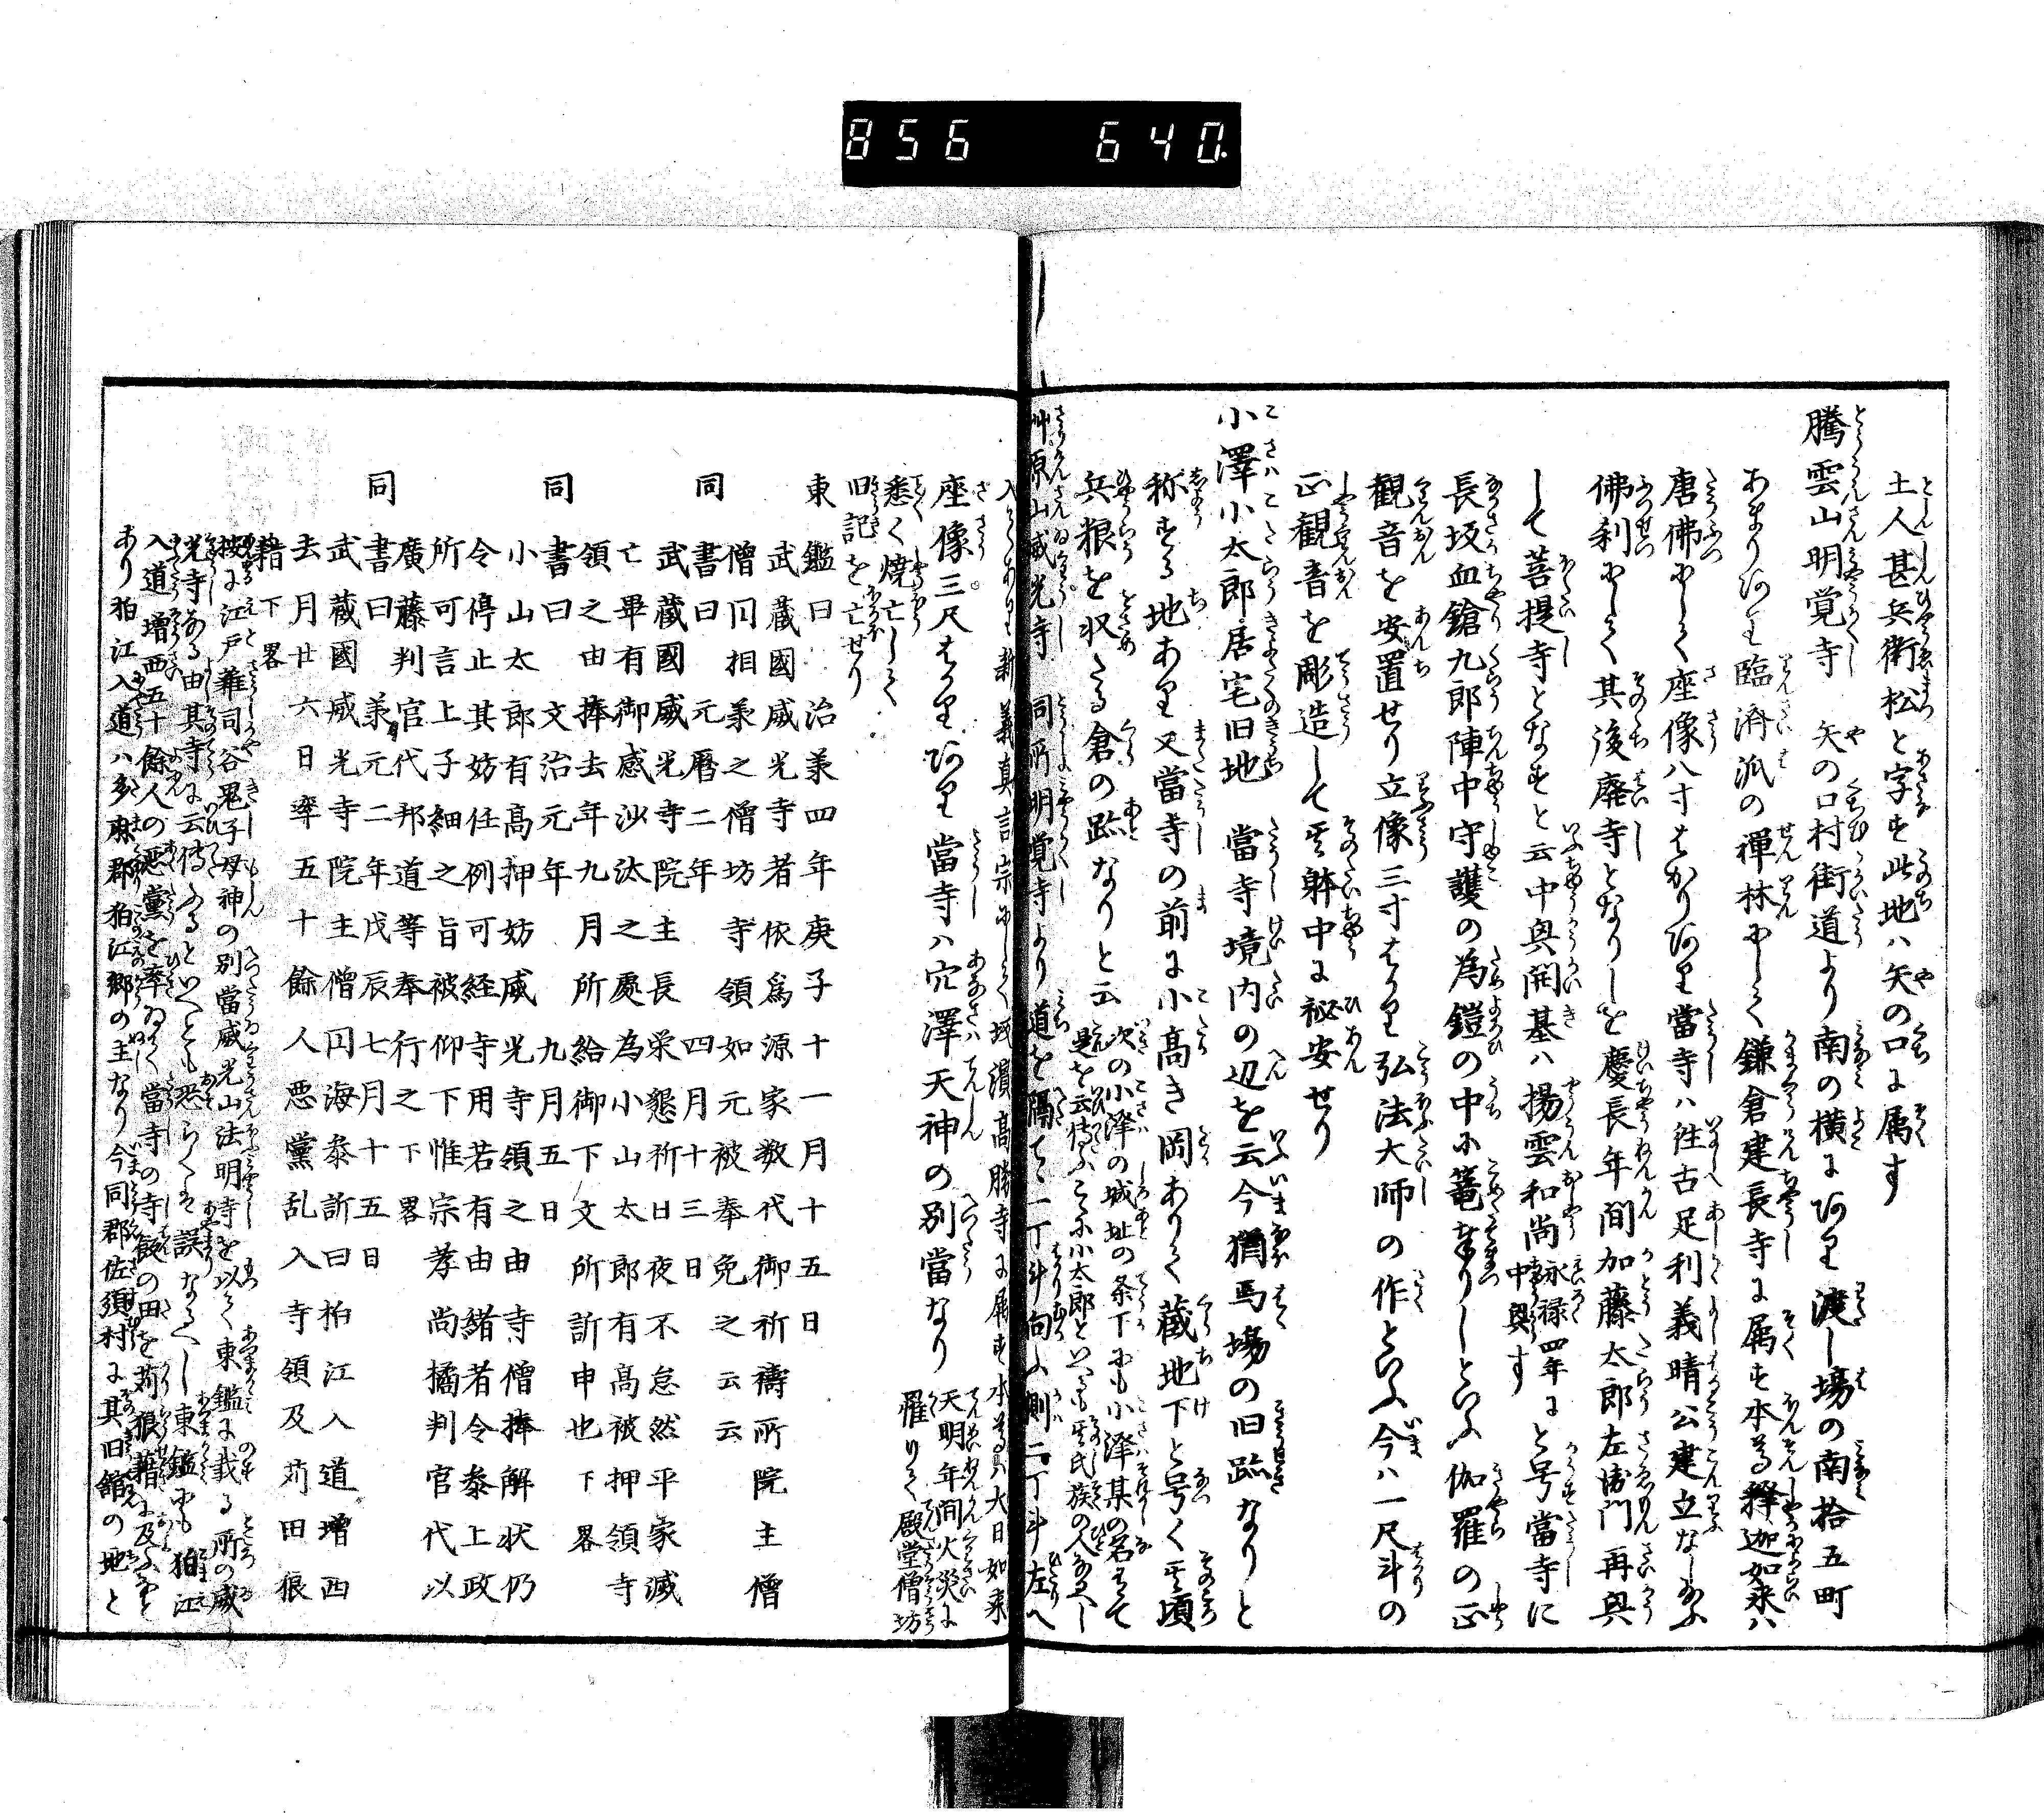 856 640.
土人甚兵衛松と字す此地ハ矢の口に属す
騰雲山明覚寺 矢の口村街道より南の横にあり渡し場の南拾五町
あまりにあり臨済派の禅林にして鎌倉建長寺に属す本尊釋迦如来ハ
唐佛にして座像八寸はかりあり當寺ハ往古足利義晴公建立なし給ふ
佛刹にして其後廃寺となりしを慶長年間加藤太郎左衛門再興
して菩提寺となすと云中興開基ハ揚雲和尚永禄四年に中興すと号當寺に
長坂血鎗九郎陣中守護の為鎧の中に篭奉りしといふ伽羅の正
観音を安置せり立像三寸はかり弘法大師の作といふ今ハ一尺斗の
正観音を彫造して其躰中に秘安せり
小澤小太郎居宅旧地 當寺境内の辺を云今猶馬場の旧跡なりと
称する地あり又當寺の前に小高き岡ありて蔵地下と号く其頃
兵粮を収たる倉の跡なりと云
次の小澤の城址の条下にも小澤某の名を
是を云傳ふこゝに小太郎といへるも其氏族の人なるへし
艸原山威光寺 同所明覚寺より道を隔て一丁斗向ふ側二丁斗左へ
入てあり新義真言宗にして坂濱高勝寺に属す本尊ハ大日如来
座像三尺はかりあり當寺ハ穴澤天神の別當なり天明年間火災に罹りて殿堂僧坊
悉く焼亡して
旧記を亡せり
東鑑曰 治羕四年庚子十一月十五日
武蔵國威光寺者依爲源家数代御祈禱所院主僧
僧円相羕之僧坊寺領如元被奉免之云云
同書曰 元曆二年四月十三日
武蔵國威光寺院主長栄懇祈日夜不怠然平家滅
亡畢有御感沙汰之處為小山太郎有高被押領寺
領之由捧去年九月所給御下文所訴申也下畧
同書曰 文治元年九月五日
小山太郎有高押妨威光寺領之由寺僧捧解状仍
令停止其妨任例可経寺用若有由緒者令泰上政
所可言上子細之旨被仰下惟宗孝尚橘判官代以
廣藤判官代邦道等奉行之下畧
同書曰 羕元二年戊辰七月十五日
武蔵國威光寺院主僧円海泰訴曰柏江入道增西
去月廿六日率五十餘人悪黨乱入寺領及苅田狼
藉下畧
按に江戸雜司谷鬼子母神の別當威光山法明寺を以て東鑑に載る所の威
光寺なる由其寺に云傳ふるといへとも恐らくは誤なるへし東鑑にも狛江
入道增西五十餘人の悪黨を率ゐて當寺の寺飯の田を苅狼藉に及ふと
あり狛江入道ハ多麻郡狛江郷の主なり今同郡佐須村に其旧舘の地と